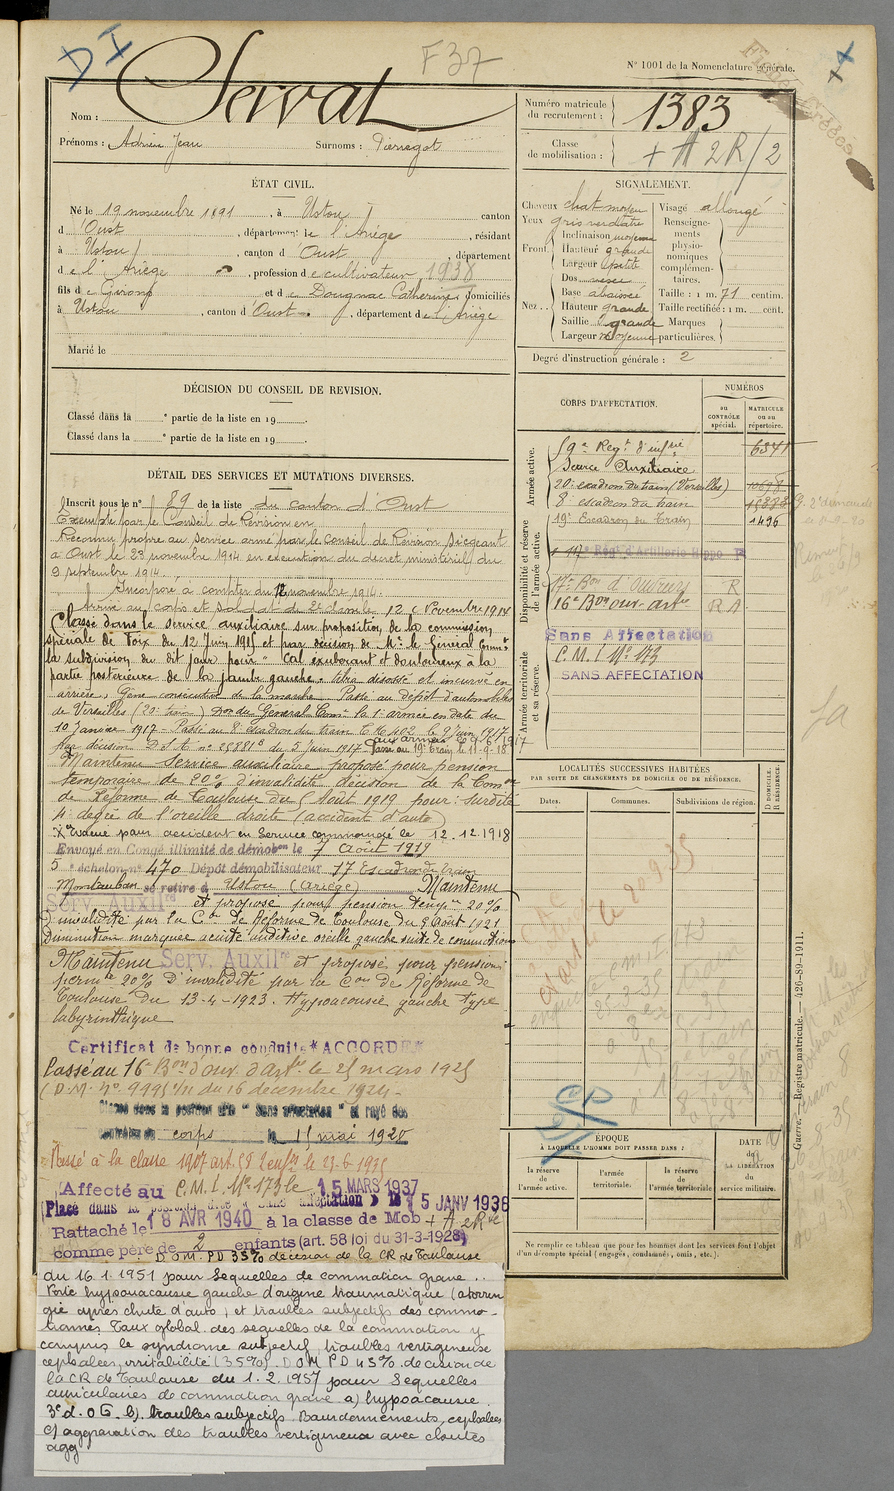 D I
F 37
N° 1001 de la Nomenclature générale.
Nom : Servat
Prénoms : Adrien Jean Surnoms : Pierragat
Numéro matricule du recrutement : 1383
Classe de mobilisation : + A 2R/2
ÉTAT CIVIL.
Né le 19 novembre 1891, à Ustou, canton
d'Oust, département de l'Ariège, résidant
à Ustou, canton d'Oust, département
de l'Ariège, profession de cultivateur 1938
fils de Girons et de Dougnac Catherine domiciliés
à Ustou, canton d'Oust, département de l'Ariège
Marié le
SIGNALEMENT.
Cheveux chat. moyen Visage allongé
Yeux gris verdâtre
Front. Inclinaison moyenne
Hauteur grande
Largeur petite
Nez. Dos
Base abaissée
Hauteur grande
Saillie grande
Largeur moyenne
Renseignements physionomiques complémentaires.
Taille : 1 m. 71 centim.
Taille rectifiée : 1 m. cent.
Marques particulières.
Degré d'instruction générale : 2
DÉCISION DU CONSEIL DE REVISION.
Classé dans la ° partie de la liste en 19 .
Classé dans la ° partie de la liste en 19 .
DÉTAIL DES SERVICES ET MUTATIONS DIVERSES.
Inscrit sous le n° 89 de la liste du canton d'Oust
Exempté par le Conseil de Révision en
Reconnu propre au service armé par le Conseil de Révision siégeant
à Oust le 23 novembre 1914 en exécution du décret ministériel du
9 septembre 1914.
Incorporé à compter du 12 novembre 1914.
Arrivé au corps et soldat de 2e cl. le 12 Novembre 1914
Classé dans le service auxiliaire sur proposition de la commission
spéciale de Foix du 12 Juin 1915 et par décision de Mr le Général Commt
la subdivision du dit jour pour " Cal exubérant et douloureux à la
partie postérieure de la jambe gauche. Tibia désossé et incurvé en
arrière, Gêne consécutive de la marche. Passé au dépôt d'automobiles
de Versailles (20e train) Don du Général Comt la 1e armée en date du
10 Janvier 1917 - Passé au 8e Escadron du train le 9 Juin 1917
par décision D.S.A. n° 25881 du 5 Juin 1917 Passé au 19e Train le 11-9-18
Maintenu Service auxiliaire proposé pour pension
temporaire de 20% d'invalidité décision de la Comon
de Réforme de Toulouse du 5 Août 1919 pour : surdité
4e degré de l'oreille droite (accident d'auto)
Évacué pour accident en Service commandé le 12.12.1918
Envoyé en Congé illimité de démobon le 7 Août 1919
5e échelon n° 470 Dépôt démobilisateur 17 Escadron du train
Montauban se retire à Ustou (Ariège) Maintenu
Serv. Auxilre et proposé pour pension tempre 20%
d'invalidité par la Con de Réforme de Toulouse du 9 Août 1921
Diminution marquée acuité auditive oreille gauche suite de commotion
Maintenu Serv. Auxilre et proposé pour pension
permte 20% d'invalidité par la Con de Réforme de
Toulouse du 13-4-1923. Hypoacousie gauche type
labyrinthique
Certificat de bonne conduite *ACCORDE*
Passé au 16e Bon d'ouv. d'artie le 25 mars 1925
(D.M. n° 9995 1/11 du 16 décembre 1924.
Classé dans la position dite " Sans affectation " et rayé des
contrôles du corps le 11 mai 1920
Passé à la classe 1907 art. 58 2 enfts le 23-6-1935
Affecté au C.M.I. No 173 le 15 MARS 1937
Placé dans la position dite « sans affectation » le 15 JANV 1938
Rattaché le 18 AVR 1940 à la classe de Mob + A 2R/2
comme père de 2 enfants (art. 58 loi du 31-3-1928)
D.O.M. P.D 35% décision de la CR de Toulouse
du 16.1.1951 pour Séquelles de commotion grave..
Forte hypoacousie gauche d'origine traumatique (otorra
gie après chute d'auto) et troubles subjectifs des commo-
tionnés. Taux global des séquelles de la commotion y
compris le syndrome subjectif, troubles vertigineuse
céphalées, irritabilité (35%). D.O.M P D 45% décision de
la CR de Toulouse du 1.2.1957 pour Séquelles
auriculaires de commotion grave a) hypoacousie
3e d. O G. b) troubles subjectifs Bourdonnements, céphalées
c) aggravation des troubles vertigineux avec chutes
agg
CORPS D'AFFECTATION.
NUMÉROS
au CONTRÔLE spécial.
MATRICULE ou au répertoire.
Armée active.
59e Regt d'infie 6341
Service Auxiliaire
20e escadron du train (Versailles)
8e escadron du train
19e Escadron du Train 1496
Disponibilité et réserve de l'armée active.
Régt d'Artillerie Hippo R
17e Bon d'Ouvriers R
16e Bon ouv. artie R A
Armée territoriale et sa réserve.
Sans Affectation
C.M.I No 173
SANS AFFECTATION
LOCALITÉS SUCCESSIVES HABITÉES
PAR SUITE DE CHANGEMENTS DE DOMICILE OU DE RÉSIDENCE.
Dates. Communes. Subdivisions de région. D DOMICILE. R RÉSIDENCE.
ÉPOQUE
À LAQUELLE L'HOMME DOIT PASSER DANS :
la réserve de l'armée active.
l'armée territoriale.
la réserve de l'armée territoriale
DATE de LA LIBÉRATION du service militaire.
Ne remplir ce tableau que pour les hommes dont les services font l'objet
d'un décompte spécial (engagés, condamnés, omis, etc.).
Guerre. — Registre matricule. — 426-89-1911.